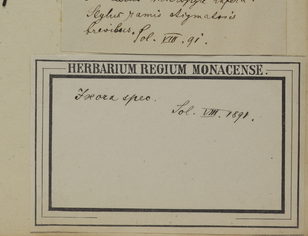 Stylus ramis stigmatosis
brevibus. Sol. VIII. 91.
HERBARIUM REGIUM MONACENSE.
Ixora spec.
Sol. VIII. 1891.